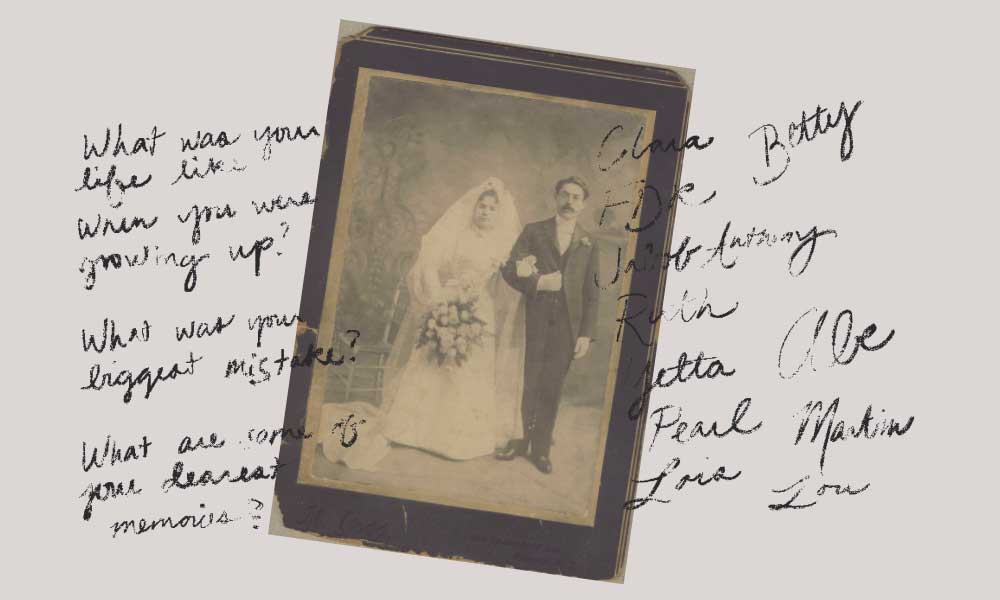 What was your
life like
When you were
growing up?
What was your
biggest mistake?
What are some of
your dearest
memories?
Clara Betty
FDR
Jacob Anthony
Ruth
Yetta Abe
Pearl Martin
Lois Lou